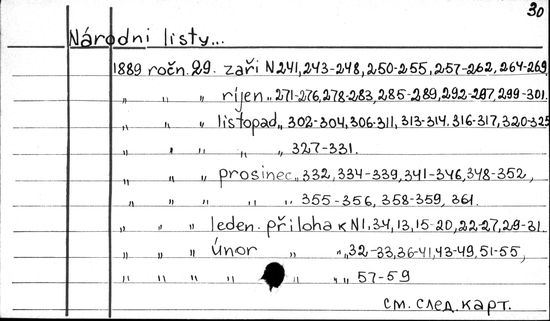 30
Národni listy...
1889 ročn. 29. zaři N 241, 243-248, 250-255, 257-262, 264-269,
„ „ „ říjen „ 271-276, 278-283, 285-289, 292-297, 299-301.
„ „ „ listopad „ 302-304, 306-311, 313-314. 316-317, 320-325
„ „ „ „ „ 327-331.
„ „ „ prosinec „ 332, 334-339, 341-346, 348-352,
„ „ „ „ „ 355-356, 358-359, 361.
„ „ „ leden. přiloha к N 1, 34, 13, 15-20, 22-27, 29-31.
„ „ „ únor „ „ „ 32-33, 36-41, 43-49, 51-55,
„ „ „ „ „ „ „ 57-59
см. след. карт.